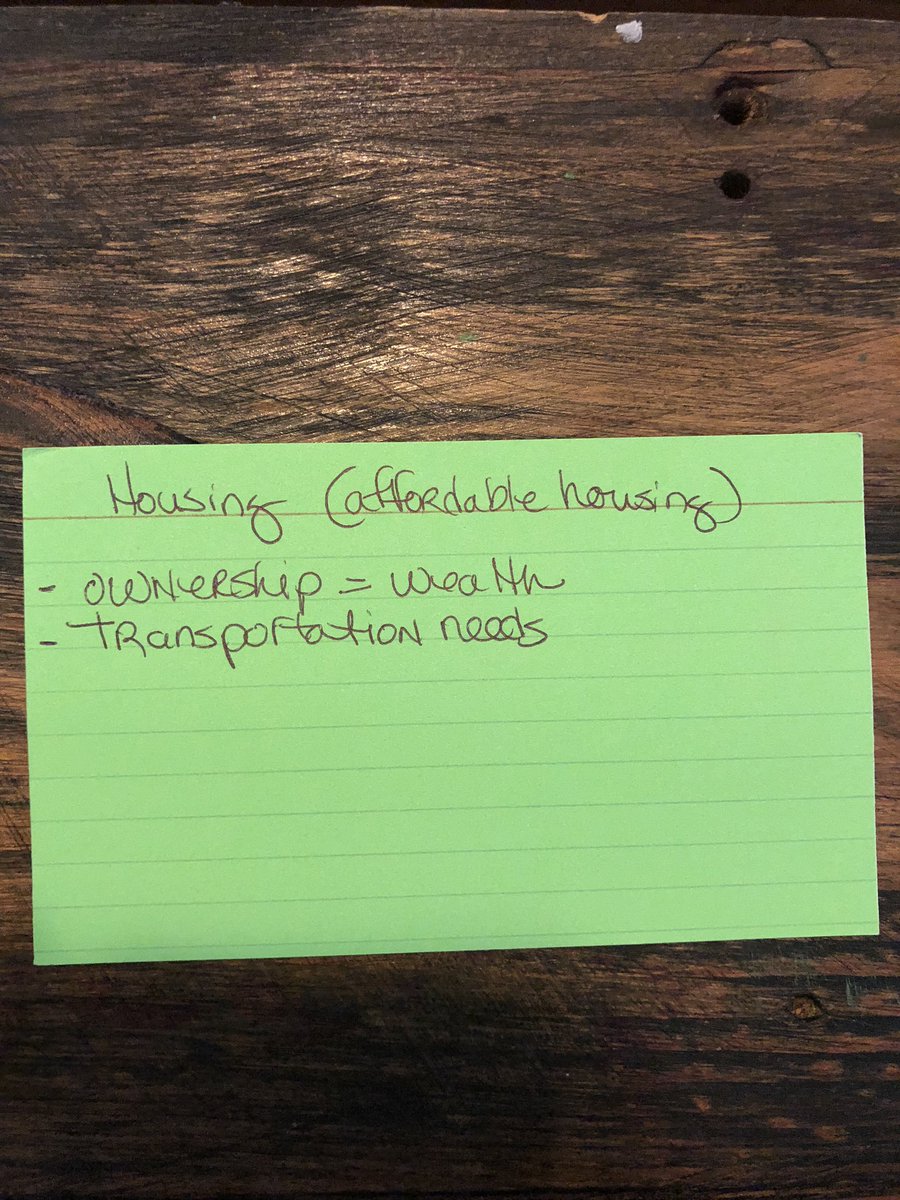 Housing (affordable housing)
- ownership = wealth
- Transportation needs